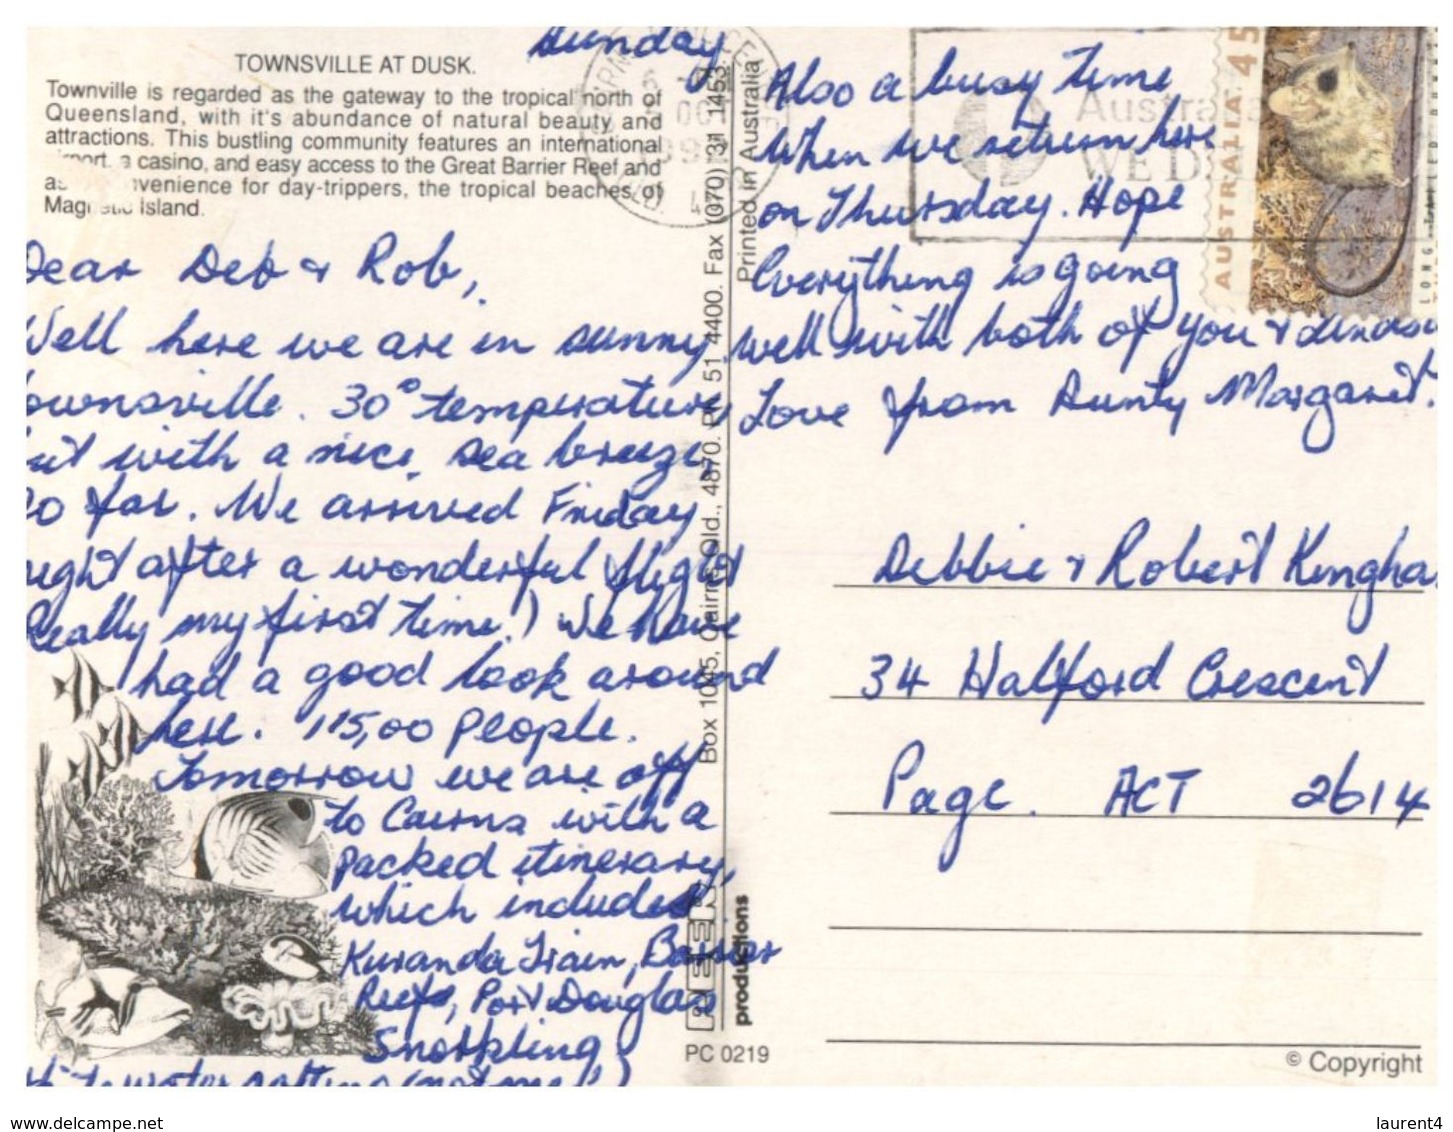 TOWNSVILLE AT DUSK.
Townville is regarded as the gateway to the tropical north of
Queensland, with it's abundance of natural beauty and
attractions. This bustling community features an international
a casino, and easy access to the Great Barrier Reef and
for day-trippers, the tropical beaches of
Island.
Sunday
Dear Deb & Rob,
Well here we are in sunny
Townsville. 30° temperature
but with a nice sea breeze
so far. We arrived Friday
night after a wonderful flight
Really my first time!) We have
had a good look around
here. 115,00 People.
Tomorrow we are off
to Cairns with a
packed itinerary,
which includes
Kuranda Train, Barrier
Reefs, Port Douglas
Snorkling
water rafting (not me!)
Also a busy time
When we return here
on Thursday. Hope
Everything is going
well with both of you &
Love from Aunty Margaret.
Box 1045, Cairns Qld., 4870. Ph 51 4400. Fax (070) 31 1453
Printed in Australia
productions
PC 0219
AUSTRALIA 45
LONG-TAILED
Australia
WED
Debbie & Robert Kingha
34 Halford Crescent
Page. ACT 2614
© Copyright
www.delcampe.net
laurent4